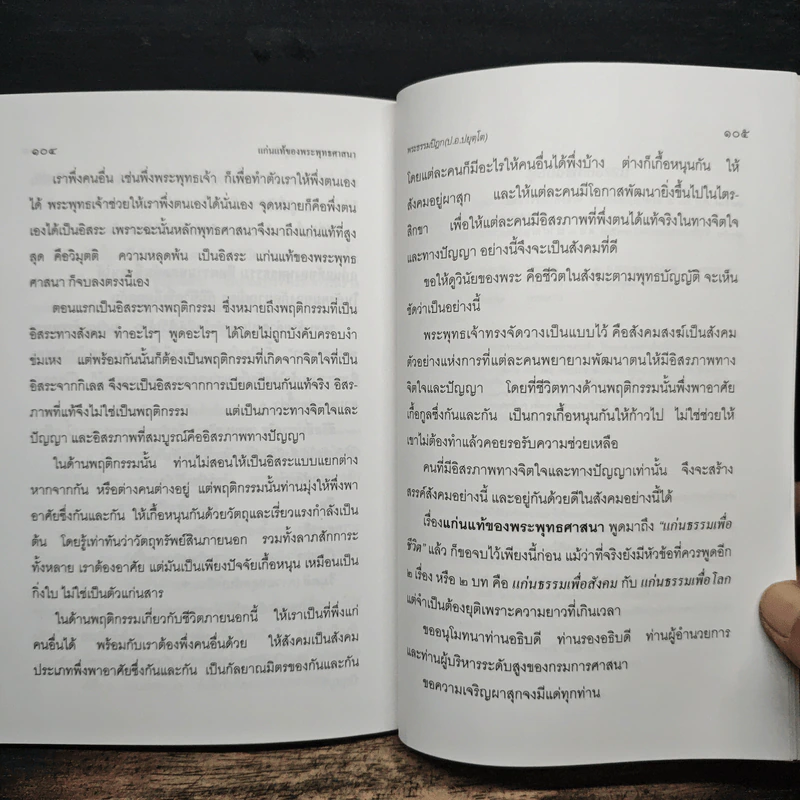 ๑๐๔ แก่นแท้ของพระพุทธศาสนา
เราพึ่งคนอื่น เช่นพึ่งพระพุทธเจ้า ก็เพื่อทำตัวเราให้พึ่งตนเอง
ได้ พระพุทธเจ้าช่วยให้เราพึ่งตนเองได้นั่นเอง จุดหมายก็คือพึ่งตน
เองได้เป็นอิสระ เพราะฉะนั้นหลักพุทธศาสนาจึงมาถึงแก่นแท้ที่สูง
สุด คือวิมุตติ ความหลุดพ้น เป็นอิสระ แก่นแท้ของพระพุทธ
ศาสนา ก็จบลงตรงนี้เอง
ตอนแรกเป็นอิสระทางพฤติกรรม ซึ่งหมายถึงพฤติกรรมที่เป็น
อิสระทางสังคม ทำอะไรๆ พูดอะไรๆ ได้โดยไม่ถูกบังคับครอบงำ
ข่มเหง แต่พร้อมกันนั้นก็ต้องเป็นพฤติกรรมที่เกิดจากจิตใจที่เป็น
อิสระจากกิเลส จึงจะเป็นอิสระจากการเบียดเบียนกันแท้จริง อิสร-
ภาพที่แท้จึงไม่ใช่เป็นพฤติกรรม แต่เป็นภาวะทางจิตใจและ
ปัญญา และอิสรภาพที่สมบูรณ์คืออิสรภาพทางปัญญา
ในด้านพฤติกรรมนั้น ท่านไม่สอนให้เป็นอิสระแบบแยกต่าง
หากจากกัน หรือต่างคนต่างอยู่ แต่พฤติกรรมนั้นท่านมุ่งให้พึ่งพา
อาศัยซึ่งกันและกัน ให้เกื้อหนุนกันด้วยวัตถุและเรี่ยวแรงกำลังเป็น
ต้น โดยรู้เท่าทันว่าวัตถุทรัพย์สินภายนอก รวมทั้งลาภสักการะ
ทั้งหลาย เราต้องอาศัย แต่มันเป็นเพียงปัจจัยเกื้อหนุน เหมือนเป็น
กิ่งใบ ไม่ใช่เป็นตัวแก่นสาร
ในด้านพฤติกรรมเกี่ยวกับชีวิตภายนอกนี้ ให้เราเป็นที่พึ่งแก่
คนอื่นได้ พร้อมกับเราต้องพึ่งคนอื่นด้วย ให้สังคมเป็นสังคม
ประเภทพึ่งพาอาศัยซึ่งกันและกัน เป็นกัลยาณมิตรของกันและกัน
พระธรรมปิฎก(ป.อ.ปยุตฺโต) ๑๐๕
โดยแต่ละคนก็มีอะไรให้คนอื่นได้พึ่งบ้าง ต่างก็เกื้อหนุนกัน ให้
สังคมอยู่ผาสุก และให้แต่ละคนมีโอกาสพัฒนายิ่งขึ้นไปในไตร-
สิกขา เพื่อให้แต่ละคนมีอิสรภาพที่พึ่งตนได้แท้จริงในทางจิตใจ
และทางปัญญา อย่างนี้จึงจะเป็นสังคมที่ดี
ขอให้ดูวินัยของพระ คือชีวิตในสังฆะตามพุทธบัญญัติ จะเห็น
ชัดว่าเป็นอย่างนี้
พระพุทธเจ้าทรงจัดวางเป็นแบบไว้ คือสังคมสงฆ์เป็นสังคม
ตัวอย่างแห่งการที่แต่ละคนพยายามพัฒนาตนให้มีอิสรภาพทาง
จิตใจและปัญญา โดยที่ชีวิตทางด้านพฤติกรรมนั้นพึ่งพาอาศัย
เกื้อกูลซึ่งกันและกัน เป็นการเกื้อหนุนกันให้ก้าวไป ไม่ใช่ช่วยให้
เขาไม่ต้องทำแล้วคอยรอรับความช่วยเหลือ
คนที่มีอิสรภาพทางจิตใจและทางปัญญาเท่านั้น จึงจะสร้าง
สรรค์สังคมอย่างนี้ และอยู่กันด้วยดีในสังคมอย่างนี้ได้
เรื่องแก่นแท้ของพระพุทธศาสนา พูดมาถึง "แก่นธรรมเพื่อ
ชีวิต" แล้ว ก็ขอจบไว้เพียงนี้ก่อน แม้ว่าที่จริงยังมีหัวข้อที่ควรพูดอีก
๒ เรื่อง หรือ ๒ บท คือ แก่นธรรมเพื่อสังคม กับ แก่นธรรมเพื่อโลก
แต่จำเป็นต้องยุติเพราะความยาวที่เกินเวลา
ขออนุโมทนาท่านอธิบดี ท่านรองอธิบดี ท่านผู้อำนวยการ
และท่านผู้บริหารระดับสูงของกรมการศาสนา
ขอความเจริญผาสุกจงมีแด่ทุกท่าน